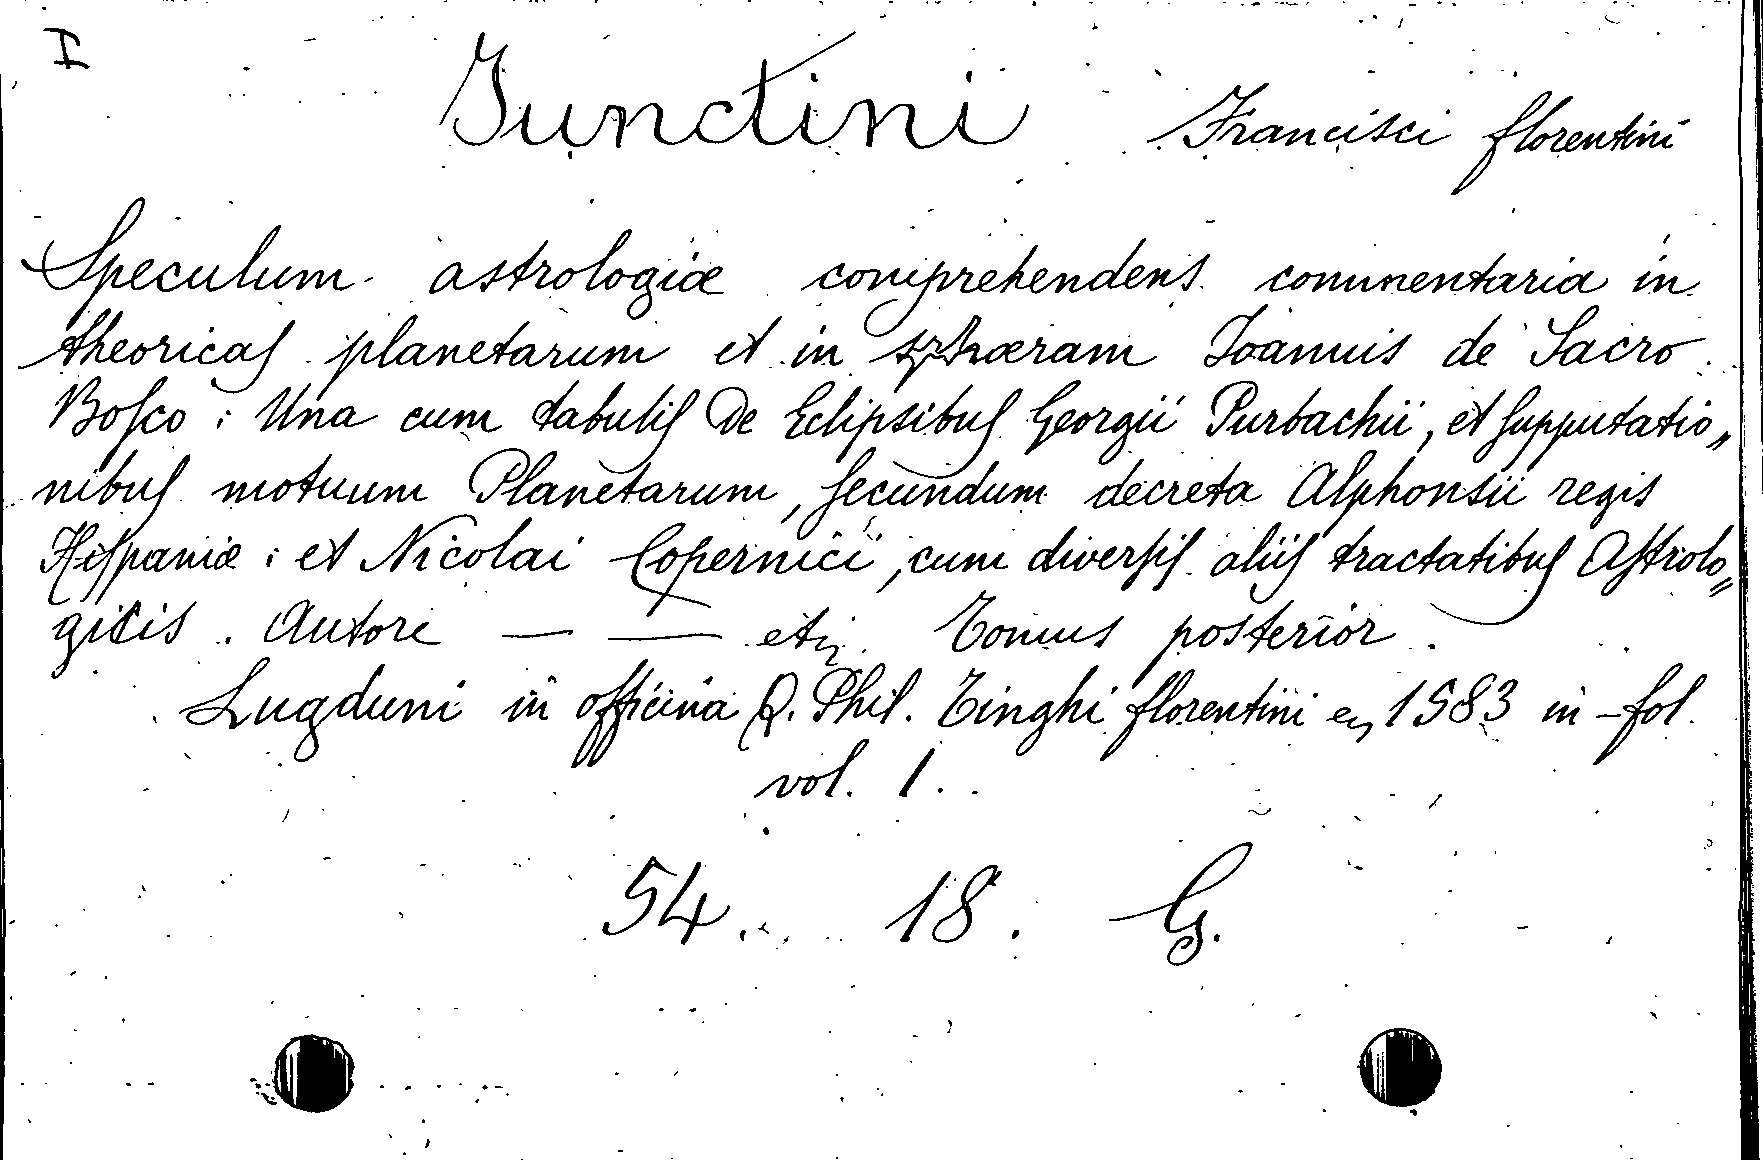 I
Junctini Francisci florentini
Speculum astrologiæ comprehendens commentaria in
theoricaſ planetarum et in sphæram Joannis de Sacro
Boſco : Una cum tabuliſ De Eclipsibuſ Georgii Purbachii, et ſupputatio„
nibuſ motuum Planetarum, ſecundum decreta Alphonsii regis
Hiſpaniæ : et Nicolai Copernici, cum diverſiſ aliiſ tractatibuſ Aſtrolo„
gicis. Autore — — Tomus posterior.
Lugduni in officina Q. Phil. Tinghi florentini 1583 in-fol.
vol. 1.
54. 18. G.